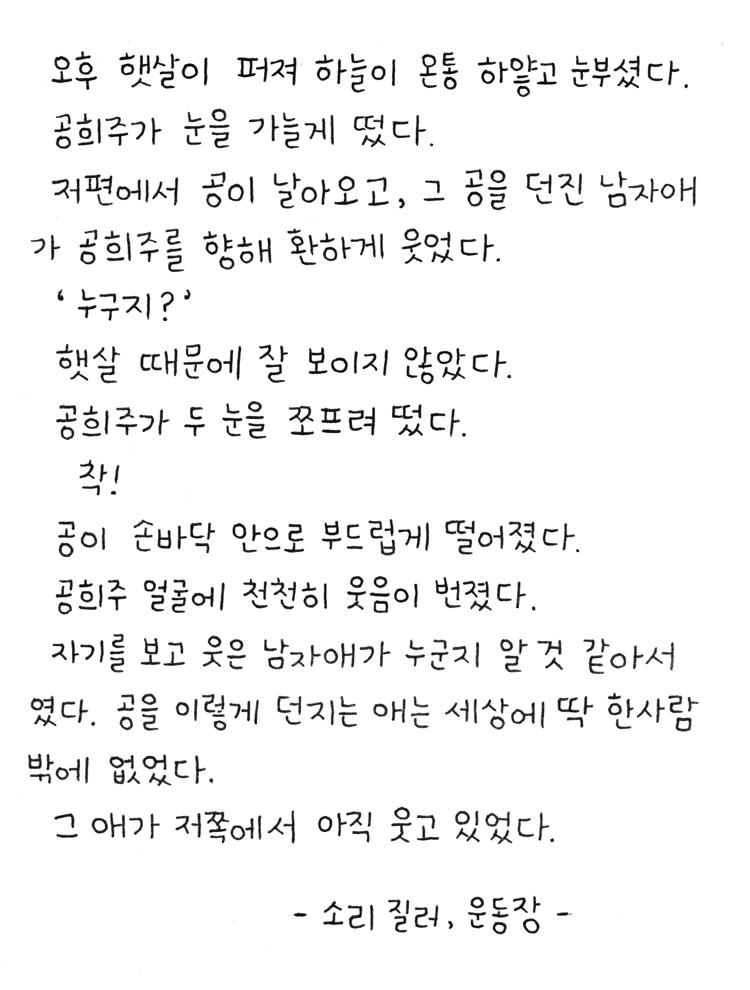 오후 햇살이 퍼져 하늘이 온통 하얗고 눈부셨다.
공희주가 눈을 가늘게 떴다.
저편에서 공이 날아오고, 그 공을 던진 남자애
가 공희주를 향해 환하게 웃었다.
‘누구지?’
햇살 때문에 잘 보이지 않았다.
공희주가 두 눈을 쪼프려 떴다.
착!
공이 손바닥 안으로 부드럽게 떨어졌다.
공희주 얼굴에 천천히 웃음이 번졌다.
자기를 보고 웃은 남자애가 누군지 알 것 같아서
였다. 공을 이렇게 던지는 애는 세상에 딱 한사람
밖에 없었다.
그 애가 저쪽에서 아직 웃고 있었다.
- 소리 질러, 운동장 -